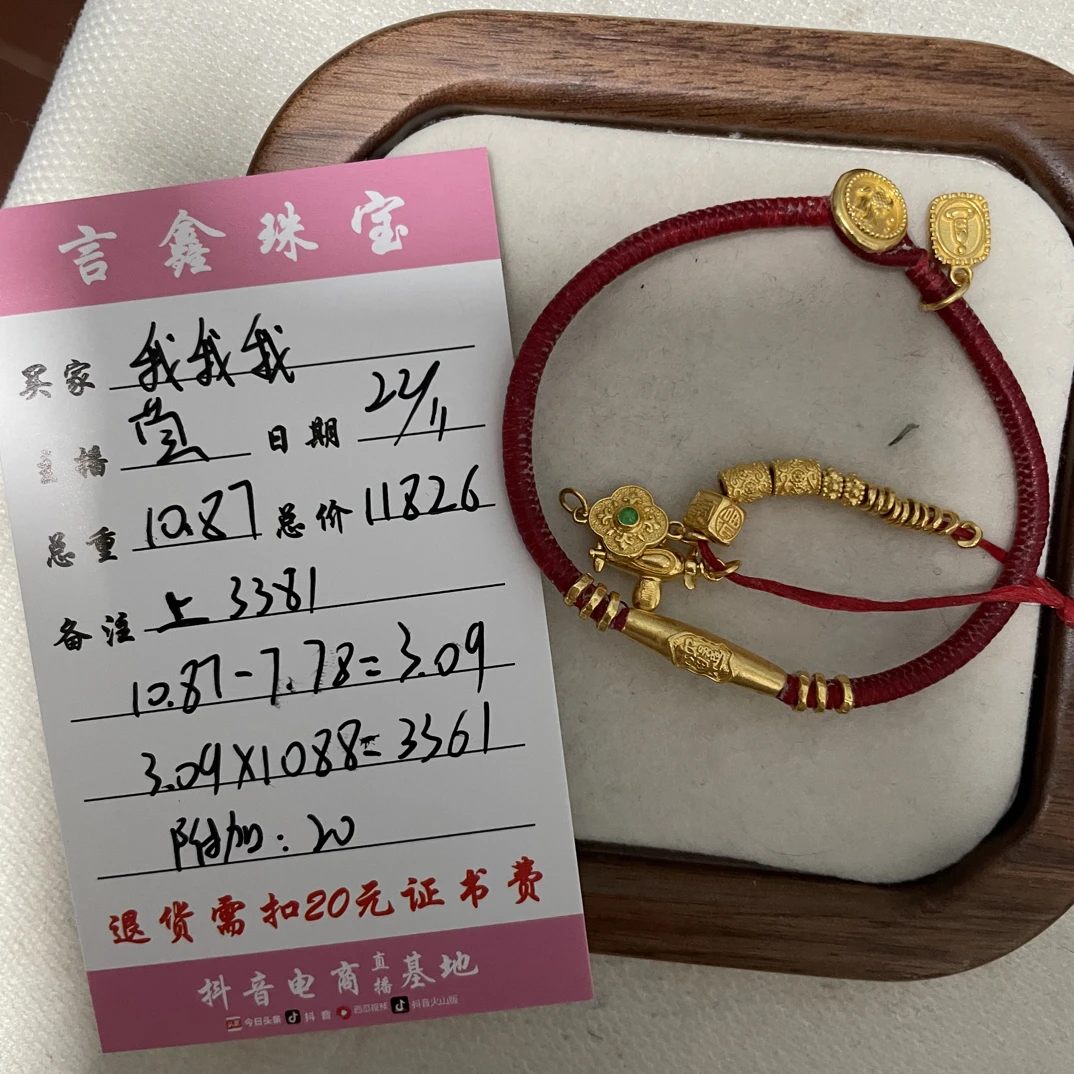 言鑫珠宝
买家 我我我
主播 日期 22/11
总重 10.87 总价 11826
备注 上 3381
10.87-7.78=3.09
3.09X1088=3361
附加：20
退货需扣20元证书费
抖音电商直播基地
今日头条 抖音 西瓜视频 抖音火山版